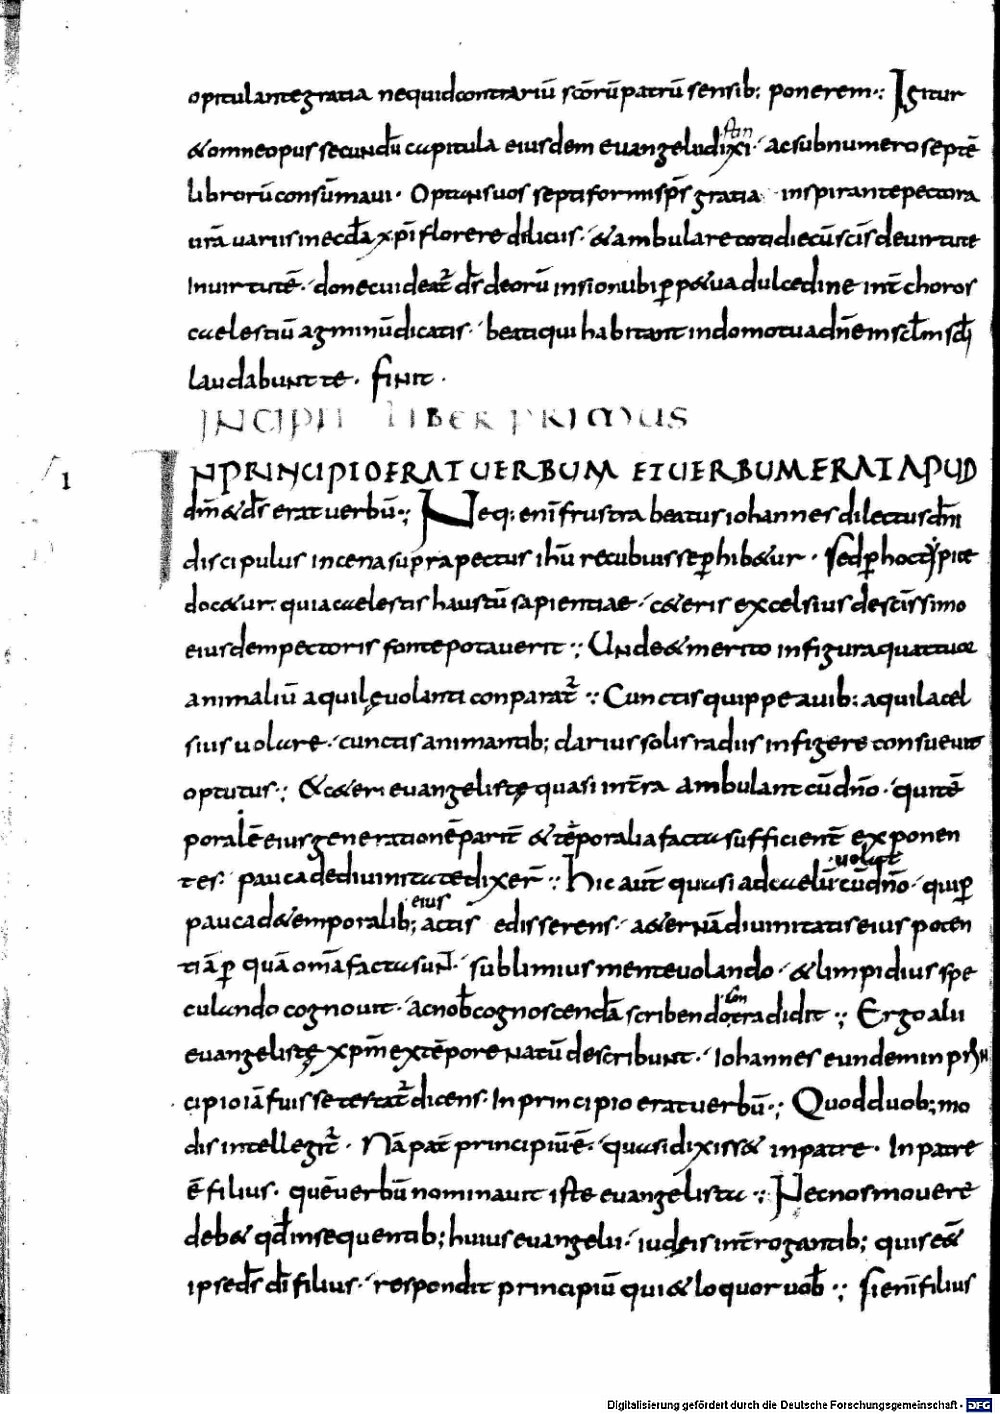 opitulante gratia nequid contrariū scōrū patrū sensib; ponerem·: Igitur
& omne opus secundū capitula eiusdem evangelii distinxi· ac sub numero septē
librorū consūmavi· Opto in suos septiformis sp̄s gratia inspirante pectora
ur̄a variis in eccl̄a xp̄i florere diliciis· & ambulare cotidie cū sc̄is de virtute
In virtutē· donec videat² d̄s deorū in sion ubi ꝑp&ua dulcedine int̄ choros
caelestiū agminū dicatis· beati qui habitant in domo tua dn̄e in scl̄m scl̄i
laudabunt te· finit·
INCIPIT LIBER PRIMUS
1 IN PRINCIPIO ERAT VERBUM ET VERBUM ERAT APUD
dm̄ & d̄s erat verbū·; Neq; eni frustra beatus iohannes dilectus dn̄i
discipulus in cena supra pectus ih̄u recubuisse ꝑhib&ur· sed ꝑ hoc typice
doc&ur· quia caelestis haustū sapientiae· c&eris excelsius de sc̄issimo
eiusdem pectoris fonte potaverit·; Unde & merito in figura quattuor
animaliū aquilę volanti conparat²·: Cunctis quippe avib; aquila cel
sius volare· cunctis animantib; clarius solis radiis infigere consuevit
optutus·; & c&eri evangelistę quasi in t̄ra ambulant cū dn̄o· qui tē
poralē eius generationē parit̄ & tēporalia facta sufficient̄ exponen
tes· pauca de divinitate dixer̄·: Hic aut̄ quasi ad caelū volat cū dn̄o· qui ꝑ
pauca de temporalib; eius actis edisserens· a&ernā divinitatis eius poten
tiā ꝑ quā omīa facta sun̄t· sublimius mente volando· & limpidius spe
culando cognovit· ac nob̄ cognoscendā scribendo contradidit·; Ergo alii
evangelistę xp̄m ex tēpore natū describunt· Iohannes eundem in prin
cipio iā fuisse testat² dicens· In principio erat verbū·; Quod duob; mo
dis intellegit²· Nā pat̄ principiū ē· quasi dixiss& in patre· In patre
ē filius· quē verbū nominavit iste evangelista·: Nec nos movere
deb& qd̄ in sequentib; huius evangelii· iudeis int̄rogantib; quis ēet
ipse d̄s dī filius· respondit principiū qui & loquor vob̄·; si enī filius
Digitalisierung gefördert durch die Deutsche Forschungsgemeinschaft - DFG